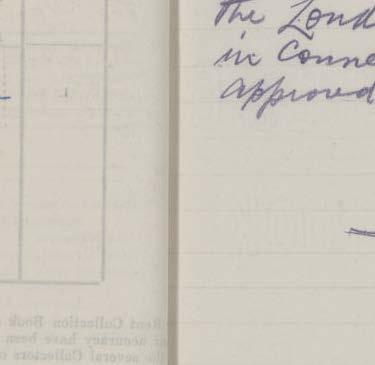 the Lond
in Conne
approved
Rent Collection Book
accuracy have been
several Collectors